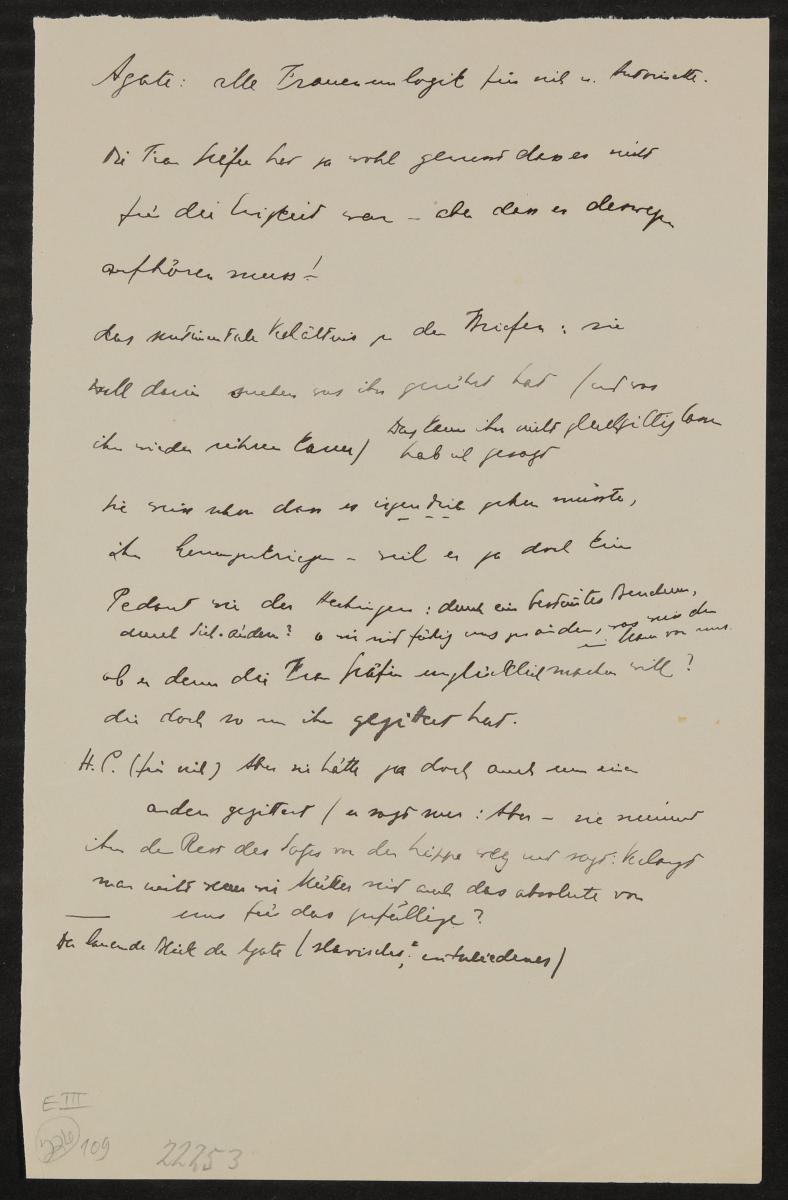 Agate: alle Frauenunlogik für sich u. Antoinette.
Die Frau Gräfin hat ja wohl gewusst dass es nicht
für die Ewigkeit war – aber dass es deswegen
aufhören muss!
das sentimentale Verhältnis zu den Briefen: sie
will darin suchen was ihn gerührt hat (und was
ihn wieder rühren kann) Das kann ihn nicht gleichgiltig lassen
hab ich gesagt
sie weiss schon dass es irgendwie gehen müsste,
ihn herumzukriegen – weil er ja doch kein
Pedant wie der Hechingen: durch ein bestimmtes Benehmen,
durch sich-ändern? o wir sind fähig uns zu ändern, was man
ein Mann von uns
ob er denn die Frau Gräfin unglücklich machen will?
die doch so um ihn gezittert hat.
H. C. (für sich) Aber sie hätte ja doch auch um einen
andern gezittert / er sagt nur: Aber – sie nimmt
ihm den Rest des Satzes von der Lippe weg und sagt: Verlangt
man nicht wenn wir Mütter sind auch das absolute von
uns für das zufällige?
Der lauernde Blick der Agate (slavisches, entschiedenes)
E III
109
22253